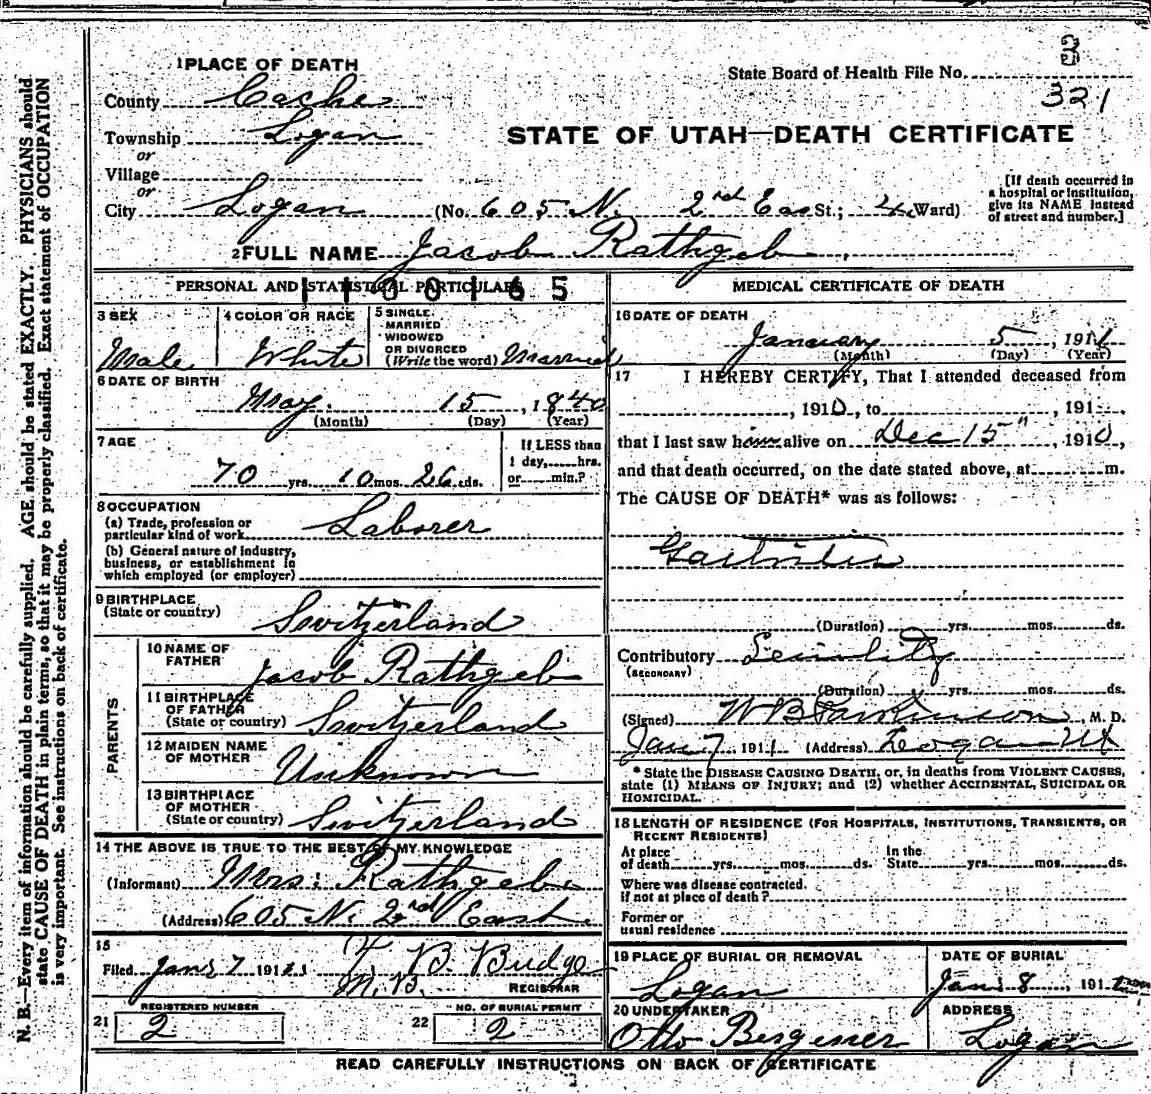 3
State Board of Health File No.
321
1 PLACE OF DEATH
County Cache
Township Logan
or
Village
or
City Logan (No. 605 N. 2nd East St.; 4 Ward)
STATE OF UTAH—DEATH CERTIFICATE
[If death occurred in
a hospital or institution,
give its NAME instead
of street and number.]
2 FULL NAME Jacob Rathgeb
PERSONAL AND STATISTICAL PARTICULARS
3 SEX Male
4 COLOR OR RACE White
5 SINGLE
MARRIED
WIDOWED
OR DIVORCED
(Write the word) Married
6 DATE OF BIRTH
May 15, 1840
(Month) (Day) (Year)
7 AGE
70 yrs. 10 mos. 26 ds.
If LESS than
1 day, hrs.
or min.?
8 OCCUPATION
(a) Trade, profession or
particular kind of work Laborer
(b) General nature of industry,
business, or establishment in
which employed (or employer)
9 BIRTHPLACE
(State or country) Switzerland
PARENTS
10 NAME OF
FATHER Jacob Rathgeb
11 BIRTHPLACE
OF FATHER
(State or country) Switzerland
12 MAIDEN NAME
OF MOTHER Unknown
13 BIRTHPLACE
OF MOTHER
(State or country) Switzerland
14 THE ABOVE IS TRUE TO THE BEST OF MY KNOWLEDGE
(Informant) Mrs. Rathgeb
(Address) 605 N. 2nd East.
15
Filed Jan 7 1911 B. Budge
REGISTRAR
REGISTERED NUMBER
21 2
NO. OF BURIAL PERMIT
22 2
MEDICAL CERTIFICATE OF DEATH
16 DATE OF DEATH
January 5, 1911
(Month) (Day) (Year)
17 I HEREBY CERTIFY, That I attended deceased from
, 1910, to , 191 ,
that I last saw him alive on Dec 15", 1910,
and that death occurred, on the date stated above, at m.
The CAUSE OF DEATH* was as follows:
Gastritis
(Duration) yrs. mos. ds.
Contributory Senility
(SECONDARY)
(Duration) yrs. mos. ds.
(Signed) W B Parkinson, M. D.
Jan 7 1911 (Address) Logan Ut
* State the DISEASE CAUSING DEATH, or, in deaths from VIOLENT CAUSES,
state (1) MEANS OF INJURY; and (2) whether ACCIDENTAL, SUICIDAL OR
HOMICIDAL.
18 LENGTH OF RESIDENCE (FOR HOSPITALS, INSTITUTIONS, TRANSIENTS, OR
RECENT RESIDENTS)
At place
of death yrs. mos. ds.
In the
State yrs. mos. ds.
Where was disease contracted.
if not at place of death?
Former or
usual residence
19 PLACE OF BURIAL OR REMOVAL
Logan
DATE OF BURIAL
Jan 8, 191
20 UNDERTAKER
Otto
ADDRESS
Logan
READ CAREFULLY INSTRUCTIONS ON BACK OF CERTIFICATE
N. B.—Every item of information should be carefully supplied. AGE should be stated EXACTLY. PHYSICIANS should
state CAUSE OF DEATH in plain terms, so that it may be properly classified. Exact statement of OCCUPATION
is very important. See instructions on back of certificate.